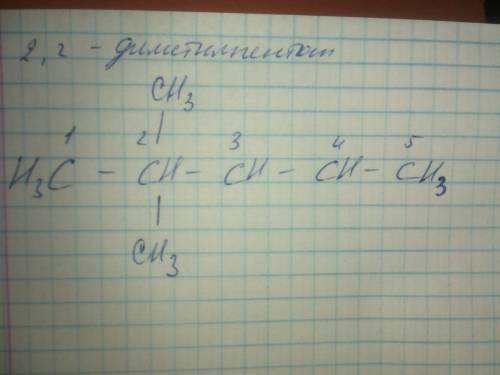 2,2 - диметилпентан
CH3
1 2 3 4 5
H3C - CH - CH - CH - CH3
CH3